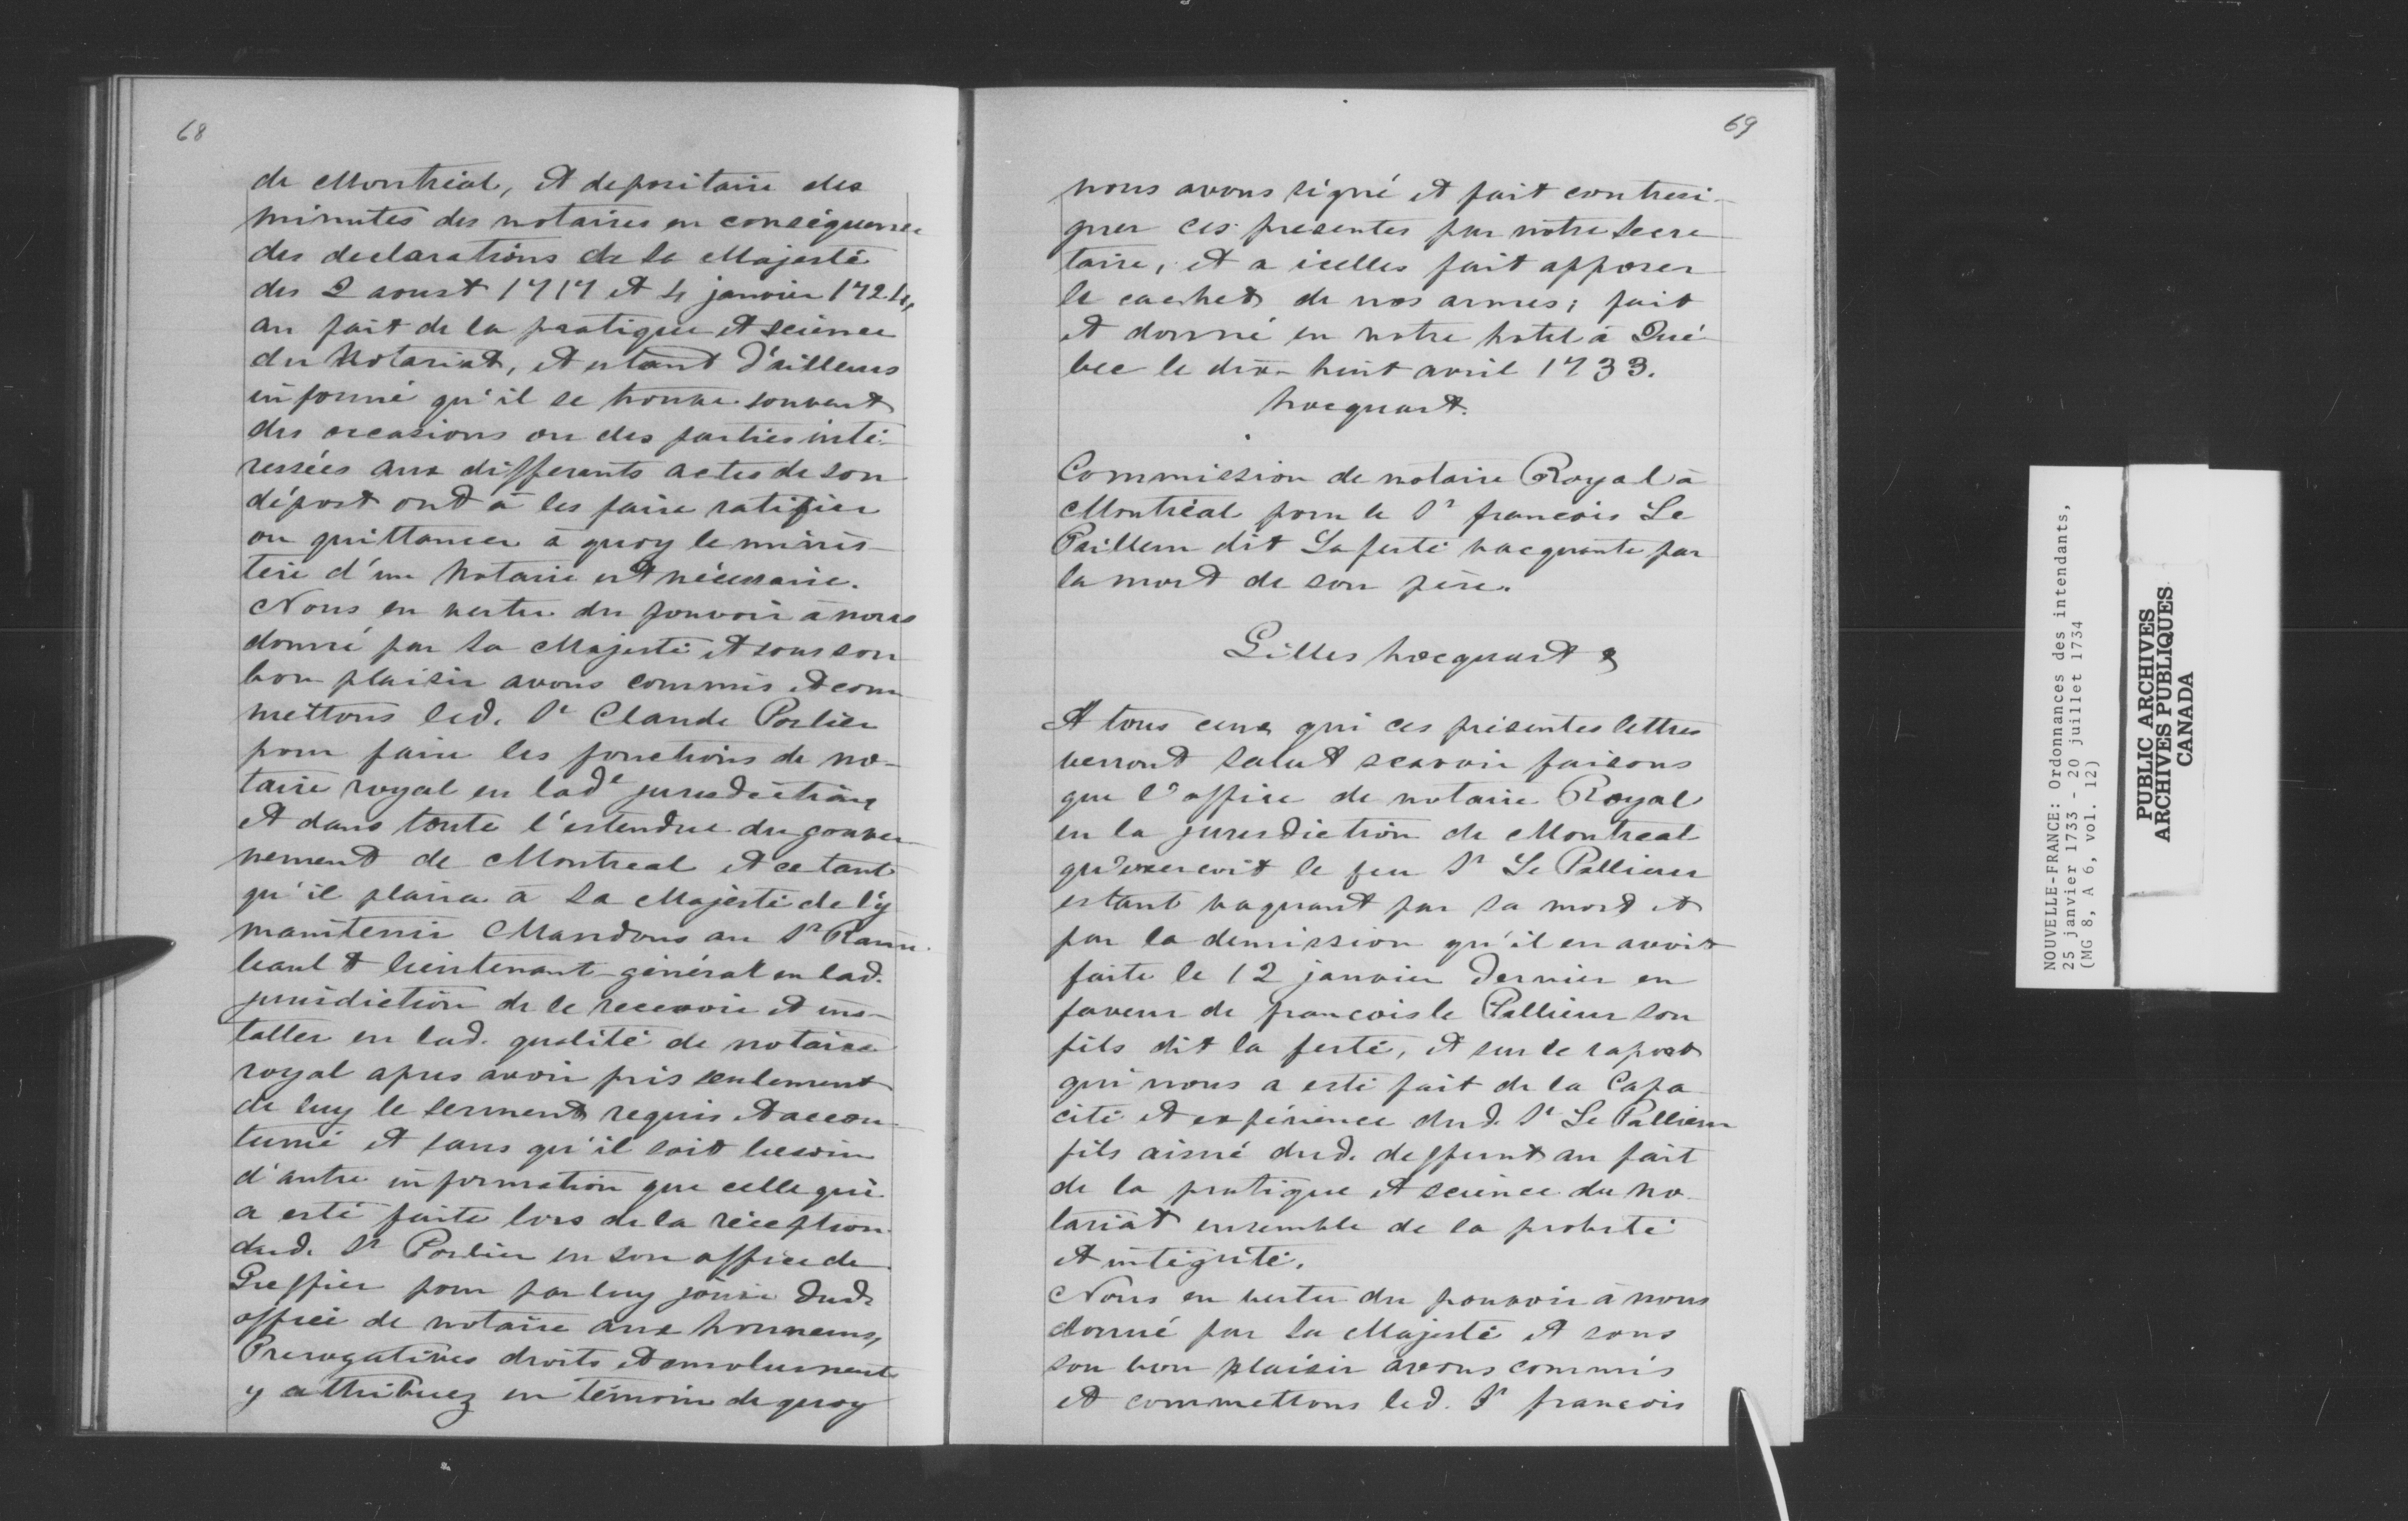 68
de Montréal, et depositaire des
minutes des notaires en conséquence
des declarations de Sa Majesté
des 2 aoust 1717 et 4 janvier 1724,
au fait de la pratique et science
du Notariat, et estant d'ailleurs
informé qu'il se trouve souvent
des occasions ou des parties inté-
ressées aux differents actes de son
dépost ont à les faire ratifier
ou quittancer à quoy le minis-
tere d'un Notaire est nécessaire.
Nous en vertu du pouvoir à nous
donné par Sa Majesté et sous son
bon plaisir avons commis et com
mettons led. Sr Claude Porlier
pour faire les fonctions de no-
taire royal en lade jurisdiction,
et dans toute l'estendue du gouver-
nement de Montreal et ce tant
qu'il plaira à Sa Majesté de l'y
maintenir Mandons au Sr Raim-
bault lieutenant-général en lad.
jurisdiction de le recevoir et ins-
taller en lad. qualité de notaire
royal apres avoir pris seulement
de luy le serment requis et accou-
tumé et sans qu'il soit besoin
d'autre information que celle qui
a esté faite lors de la réception
dud. Sr Porlier en son office de
Greffier pour par luy jouir dud.
office de notaire aux honneurs,
Prerogatives droits et emoluments
y attribuez en témoin de quoy
69
nous avons signé et fait contresi-
gner ces presentes par nôtre Secre-
taire, et a icelles fait apposer
le cachet de nos armes; fait
et donné en notre hotel à Qué-
bec le dix-huit avril 1733.
hocquart.
Commission de notaire Royal à
Montréal pour le Sr francois Le
Pailleur dit Laferté vacquante par
la mort de son père.
Gilles hocquart &
A tous ceux qui ces présentes lettres
verront Salut scavoir faisons
que l'office de notaire Royal
en la jurisdiction de Montreal
qu'exercoit le feu Sr Le Pallieur
estant vaquant par sa mort et
par la demission qu'il en avoit
faite le 12 janvier dernier en
faveur de francois le Pallieur son
fils dit la ferté, et sur le raport
qui nous a esté fait de la Capa
cité et expérience dud. Sr Le Pallieur
fils aisné dud. deffunt au fait
de la pratique et science du no-
tariat ensemble de sa probité
et intégrité.
Nous en vertu du pouvoir à nous
donné par Sa Majesté et sous
son bon plaisir avons commis
et commettons led. Sr francois
NOUVELLE-FRANCE: Ordonnances des intendants,
25 janvier 1733 - 20 juillet 1734
(MG 8, A 6, vol. 12)
PUBLIC ARCHIVES
ARCHIVES PUBLIQUES
CANADA